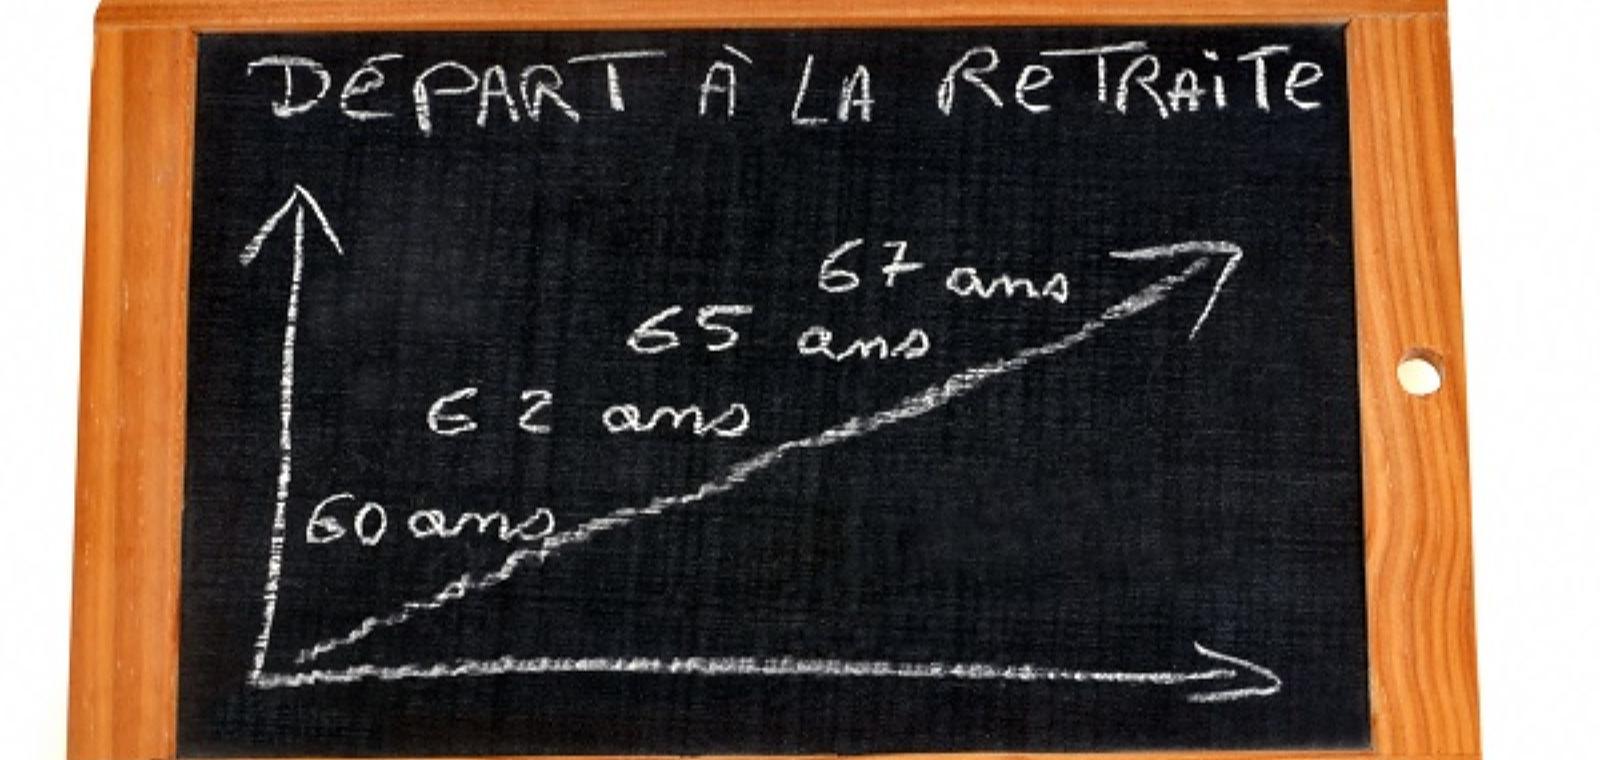 DÉPART À LA ReTRAiTe
67 ans
65 ans
62 ans
60 ans